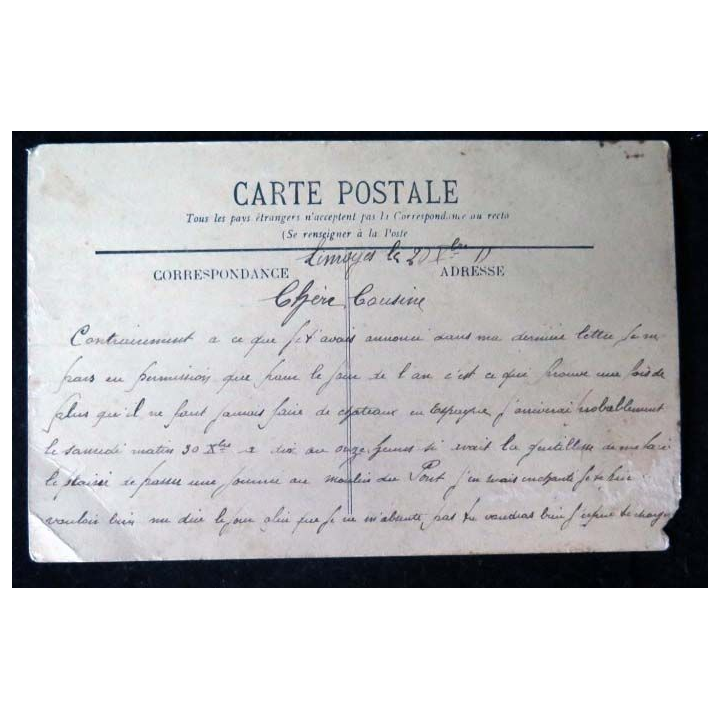 CARTE POSTALE
Tous les pays étrangers n'acceptent pas la Correspondance au recto
(Se renseigner à la Poste
Limoges le 20 Xbre 11
CORRESPONDANCE ADRESSE
Chère Cousine
Contrairement a ce que je t'avais annoncé dans ma dernière lettre je
pars en permission que pour le jour de l'an c'est ce que prouve une fois de
plus qu'il ne faut jamais faire de chateaux en Espagne j'arriverai probablement
le samedi matin 30 Xbre a dix ou onze heures si avait la gentillesse de me
le plaisir de passer une journée au moulin du Pont j'en serais enchanté
vouloir bien me dire le jour afin que je ne m'absente pas tu voudras bien